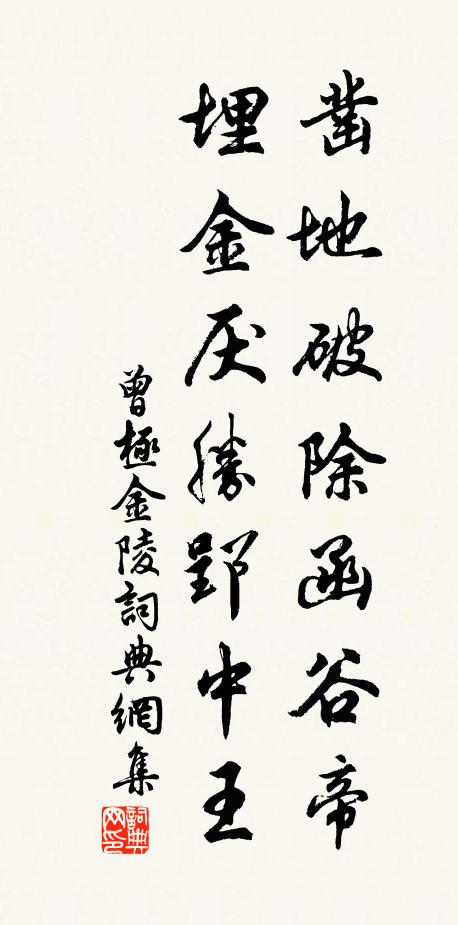 凿地破除函谷帝
埋金厌胜郢中王
曾極金陵詞典網集
詞典网印